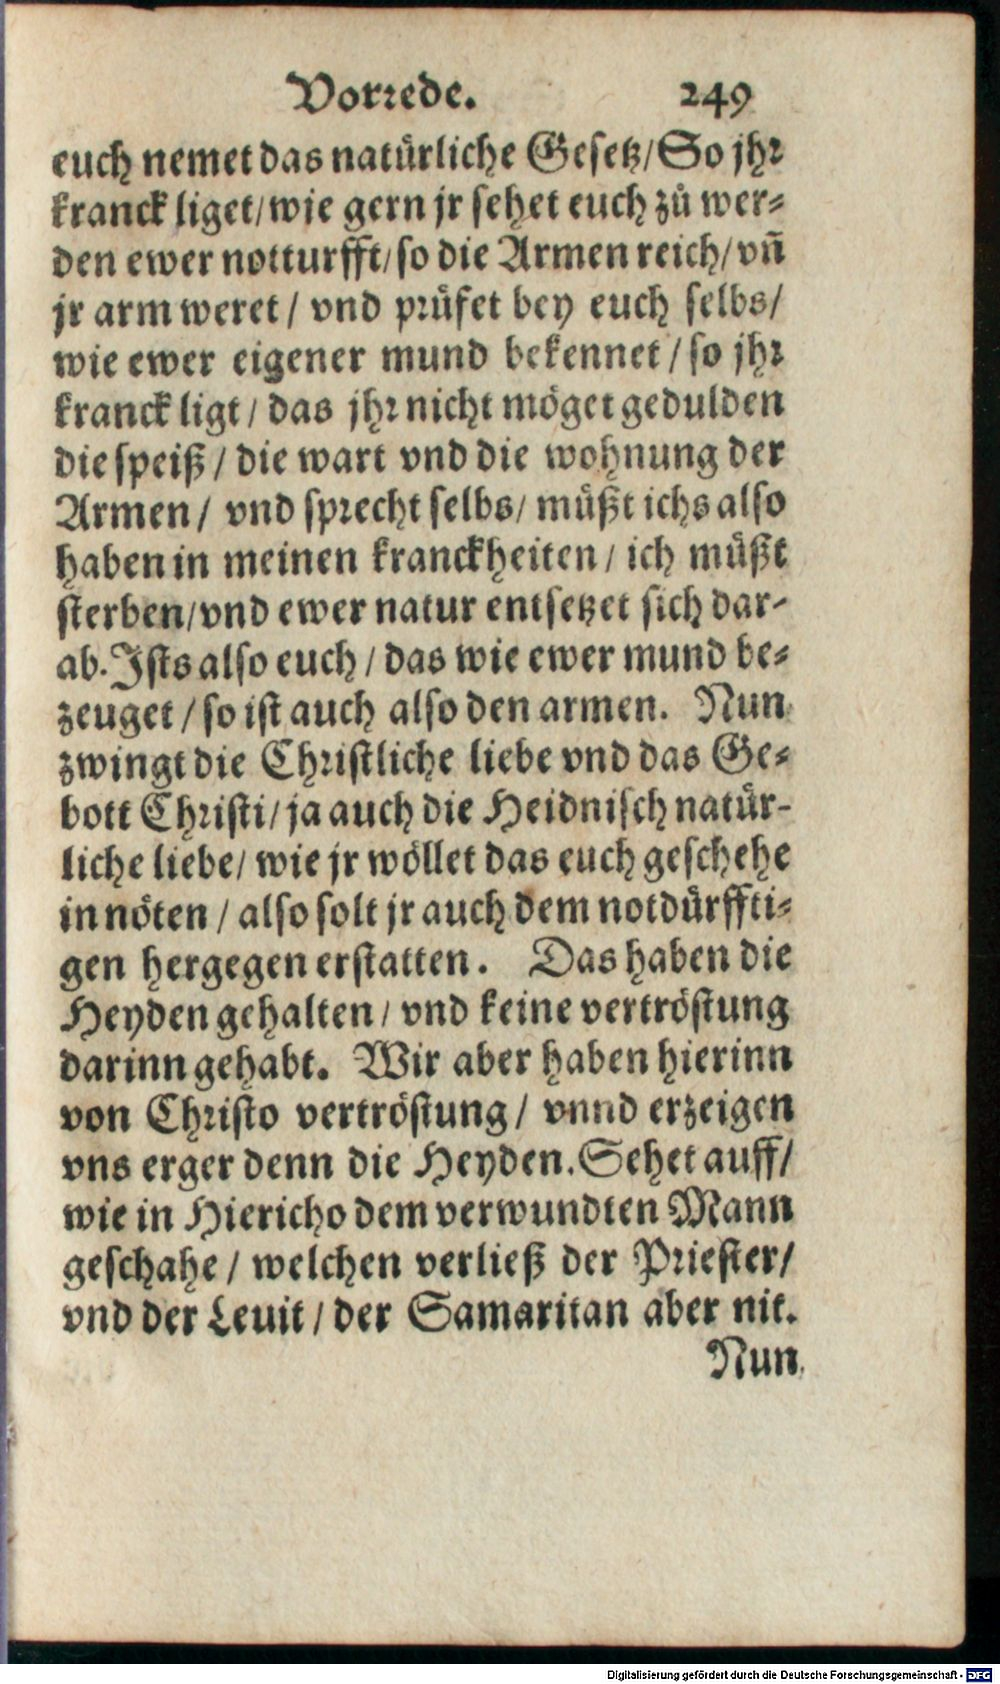 Vorrede. 249
euch nemet das natürliche Gesetz/ So jhr
kranck liget/ wie gern jr sehet euch zů wer⸗
den ewer notturfft/ so die Armen reich/ vñ
jr arm weret / vnd prüfet bey euch selbs/
wie ewer eigener mund bekennet / so jhr
kranck ligt / das jhr nicht möget gedulden
die speiß / die wart vnd die wohnung der
Armen / vnd sprecht selbs/ müßt ichs also
haben in meinen kranckheiten / ich müßt
sterben/ vnd ewer natur entsetzet sich dar⸗
ab. Ists also euch / das wie ewer mund be⸗
zeuget / so ist auch also den armen. Nun
zwingt die Christliche liebe vnd das Ge⸗
bott Christi/ ja auch die Heidnisch natür⸗
liche liebe/ wie jr wöllet das euch geschehe
in nöten / also solt jr auch dem notdürffti⸗
gen hergegen erstatten. Das haben die
Heyden gehalten / vnd keine vertröstung
darinn gehabt. Wir aber haben hierinn
von Christo vertröstung / vnnd erzeigen
vns erger denn die Heyden. Sehet auff/
wie in Hiericho dem verwundten Mann
geschahe / welchen verließ der Priester/
vnd der Leuit / der Samaritan aber nit.
Nun
Digitalisierung gefördert durch die Deutsche Forschungsgemeinschaft - DFG